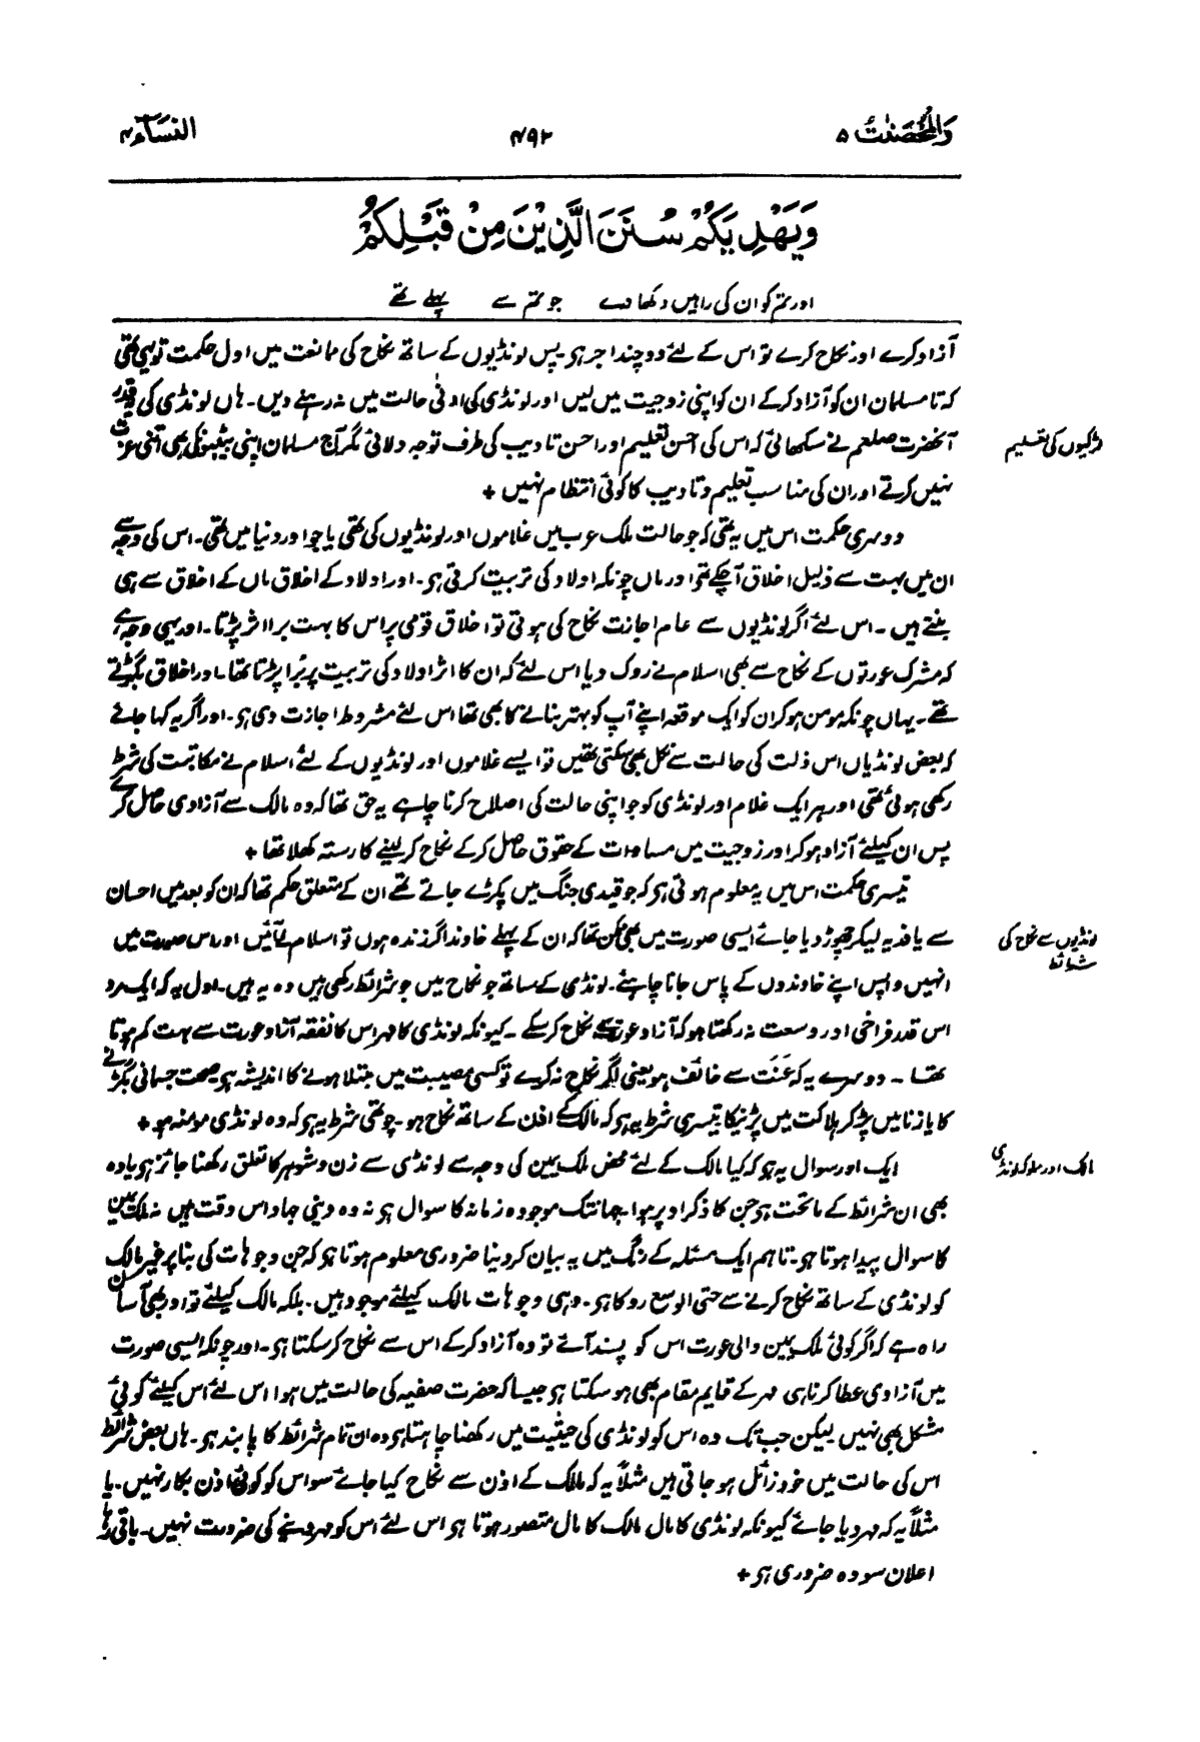 والمحصنٰت ۵
۴۹۲
النسآء ۴
وَيَهْدِيَكُمْ سُنَنَ الَّذِيْنَ مِنْ قَبْلِكُمْ
اور تم کو ان کی راہیں دکھا دے جو تم سے پہلے تھے
آزاد کرے اور نکاح کرے تو اس کے لئے دوچند اجر ہو۔ پس لونڈیوں کے ساتھ نکاح کی ممانعت میں اول حکمت تو یہی تھی
کہ تا مسلمان ان کو آزاد کرکے ان کو اپنی زوجیت میں لیں اور لونڈی کی ادنیٰ حالت میں نہ رہنے دیں۔ ہاں لونڈی کی قدر
آنحضرت صلعم نے سکھائی کہ اس کی احسن تعلیم اور احسن تادیب کی طرف توجہ دلائی مگر آج مسلمان اپنی بیٹیونکی بھی اتنی عزت
لڑکیوں کی تعلیم
نہیں کرتے اور ان کی مناسب تعلیم و تادیب کا کوئی انتظام نہیں +
دوسری حکمت اس میں یہ تھی کہ جو حالت ملک عرب میں غلاموں اور لونڈیوں کی تھی یا جو اور دنیا میں تھی۔ اس کی وجہ سے
ان میں بہت سے ذلیل اخلاق آچکے تھے اور ماں چونکہ اولاد کی تربیت کرتی ہو۔ اور اولاد کے اخلاق ماں کے اخلاق سے ہی
بنتے ہیں۔ اس لئے اگر لونڈیوں سے عام اجازت نکاح کی ہوتی تو اخلاق قومی پر اس کا بہت برا اثر پڑتا۔ اور یہی وجہ ہے
کہ مشرک عورتوں کے نکاح سے بھی اسلام نے روک دیا اس لئے کہ ان کا اثر اولاد کی تربیت پر بُرا پڑتا تھا۔ اور اخلاق بگڑتے
تھے۔ یہاں چونکہ مومن ہو کر ان کو ایک موقعہ اپنے آپ کو بہتر بنانے کا بھی تھا اس لئے مشروط اجازت دی ہو۔ اور اگر یہ کہا جائے
کہ بعض لونڈیاں اس ذلت کی حالت سے نکل بھی سکتی تھیں تو ایسے غلاموں اور لونڈیوں کے لئے اسلام نے مکاتبت کی شرط
رکھی ہوئی تھی اور ہر ایک غلام اور لونڈی کو جو اپنی حالت کی اصلاح کرنا چاہے یہ حق تھا کہ وہ مالک سے آزادی حاصل کرے
پس ان کیلئے آزاد ہو کر اور زوجیت میں مساوات کے حقوق حاصل کرکے نکاح کر لینے کا رستہ کھلا تھا +
تیسری حکمت اس میں یہ معلوم ہوتی ہو کہ جو قیدی جنگ میں پکڑے جاتے تھے ان کے متعلق حکم تھا کہ ان کو بعد میں احسان
سے یا فدیہ لیکر چھوڑ دیا جائے ایسی صورت میں بھی ممکن تھا کہ ان کے پہلے خاوند اگر زندہ ہوں تو اسلام لے آئیں اور اس صورت میں
لونڈیوں سے نکاح کی شرائط
انہیں واپس اپنے خاوندوں کے پاس جانا چاہئے۔ لونڈی کے ساتھ جو نکاح میں جو شرائط رکھی ہیں وہ یہ ہیں۔ اول یہ کہ ایک مرد
اس قدر فراخی اور وسعت نہ رکھتا ہو کہ آزاد عورت سے نکاح کرسکے۔ کیونکہ لونڈی کا مہر اس کا نفقہ آزاد عورت سے بہت کم ہوتا
تھا۔ دوسرے یہ کہ عَنَت سے خائف ہو یعنی اگر نکاح نہ کرے تو کسی مصیبت میں مبتلا ہونے کا اندیشہ ہو صحت جسمانی بگڑنے
کا یا زنا میں پڑ کر ہلاکت میں پڑنیکا تیسری شرط یہ ہو کہ مالک کے اذن کے ساتھ نکاح ہو۔ چوتھی شرط یہ ہو کہ وہ لونڈی مومنہ ہو +
ایک اور سوال یہ ہو کہ کیا مالک کے لئے محض ملک یمین کی وجہ سے لونڈی سے زن و شوہر کا تعلق رکھنا جائز ہو یا وہ
مالک اور مملوکہ لونڈی
بھی ان شرائط کے ماتحت ہو جن کا ذکر اوپر ہوا۔ جہانتک موجودہ زمانہ کا سوال ہو نہ وہ دینی جہاد اس وقت ہیں نہ ملک یمین
کا سوال پیدا ہوتا ہو۔ تاہم ایک مسئلہ کے رنگ میں یہ بیان کر دینا ضروری معلوم ہوتا ہو کہ جن وجوہات کی بنا پر غیر مالک
کو لونڈی کے ساتھ نکاح کرنے سے حتی الوسع روکا ہو۔ وہی وجوہات مالک کیلئے موجود ہیں۔ بلکہ مالک کیلئے تو اور بھی آسان
راہ ہے کہ اگر کوئی ملک یمین والی عورت اس کو پسند آئے تو وہ آزاد کرکے اس سے نکاح کرسکتا ہو۔ اور چونکہ ایسی صورت
میں آزادی عطا کرنا ہی مہر کے قایم مقام بھی ہو سکتا ہو جیسا کہ حضرت صفیہ کی حالت میں ہوا اس لئے اس کیلئے کوئی
مشکل بھی نہیں لیکن جب تک وہ اس کو لونڈی کی حیثیت میں رکھنا چاہتا ہو وہ ان تمام شرائط کا پابند ہو۔ ہاں بعض شرائط
اس کی حالت میں خود زائل ہو جاتی ہیں مثلاً یہ کہ مالک کے اذن سے نکاح کیا جائے سو اس کو کوئی اذن بکار نہیں۔ یا
مثلاً یہ کہ مہر دیا جائے کیونکہ لونڈی کا مال مالک کا مال متصور ہوتا ہو اس لئے اس کو مہر دینے کی ضرورت نہیں۔ باقی رہا
اعلان سو وہ ضروری ہو +